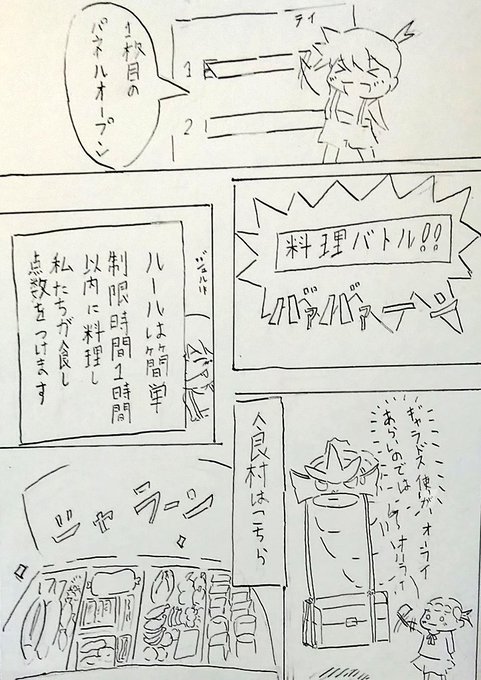 1枚目の
パネルオープン
テイ
1
2
料理バトル!!
バァバァーン
ジュルリ
ルールは簡単
制限時間1時間
以内に料理し
私たちが食し
点数をつけます
ギャラドス使が
あらいのでは
オーライ
オーライ
食材はこちら
ジャラーン